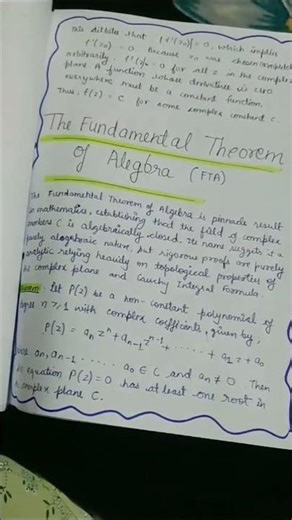 this dictates that |f'(z0)| = 0, which implies
f'(z0) = 0. Because z0 was chosen completely
arbitrarily, f'(z) = 0 for all z in the complex
plane. A function whose derivative is zero
everywhere must be a constant function.
Thus, f(z) = C for some complex constant c.
The Fundamental Theorem
of Alegbra (FTA)
The Fundamental Theorem of Algebra is pinnacle result
in mathematics, establishing that the field of complex
numbers C is algebraically closed. Its name suggests a
purely algebraic nature, but rigorous proofs are purely
analytic relying heavily on topological properties of
the complex plane and Cauchy Integral Formula.
Let P(z) be a non-constant polynomial of
degree n ≥ 1 with complex coefficients, given by,
P(z) = aₙzⁿ + aₙ₋₁zⁿ⁻¹ + ...... + a₁z + a₀
aₙ, aₙ₋₁ ..... a₀ ∈ C and aₙ ≠ 0. Then
equation P(z) = 0 has at least one root in
complex plane C.